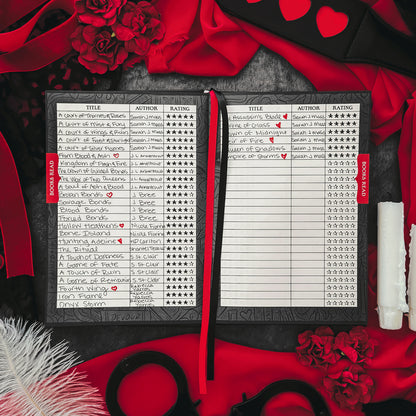 TITLE AUTHOR RATING
A Court of Thorns & Roses Sarah J Maas
A Court of Mist & Fury Sarah J Maas
A Court of Wings & Ruin Sarah J Maas
A Court of Frost & Starlight Sarah J Maas
A Court of Silver Flames Sarah J Maas
From Blood & Ash J L Armentrout
Kingdom of Flesh & Fire J L Armentrout
The Crown of Gilded Bones J L Armentrout
The War of Two Queens J L Armentrout
A Soul of Ash & Blood J L Armentrout
Ocean Bonds J. Bree
Savage Bonds J. Bree
Blood Bonds J. Bree
Forced Bonds J. Bree
Hollow Heathens Nicole Fiorina
Bone Island Nicole Fiorina
Hunting Adeline HD Carlton
The Ritual Shantel Tessier
A Touch of Darkness S. St. Clair
A Game of Fate S. St. Clair
A Touch of Ruin S. St. Clair
A Game of Retribution S. St. Clair
Fourth Wing Rebecca Yarros
Iron Flame Rebecca Yarros
Onyx Storm Rebecca Yarros
BOOKS READ
TITLE AUTHOR RATING
Assassin's Blade Sarah J Maas
of Glass Sarah J Maas
of Midnight Sarah J Maas
of Fire Sarah J Maas
of Shadows Sarah J Maas
of Storms Sarah J Maas
BOOKS READ